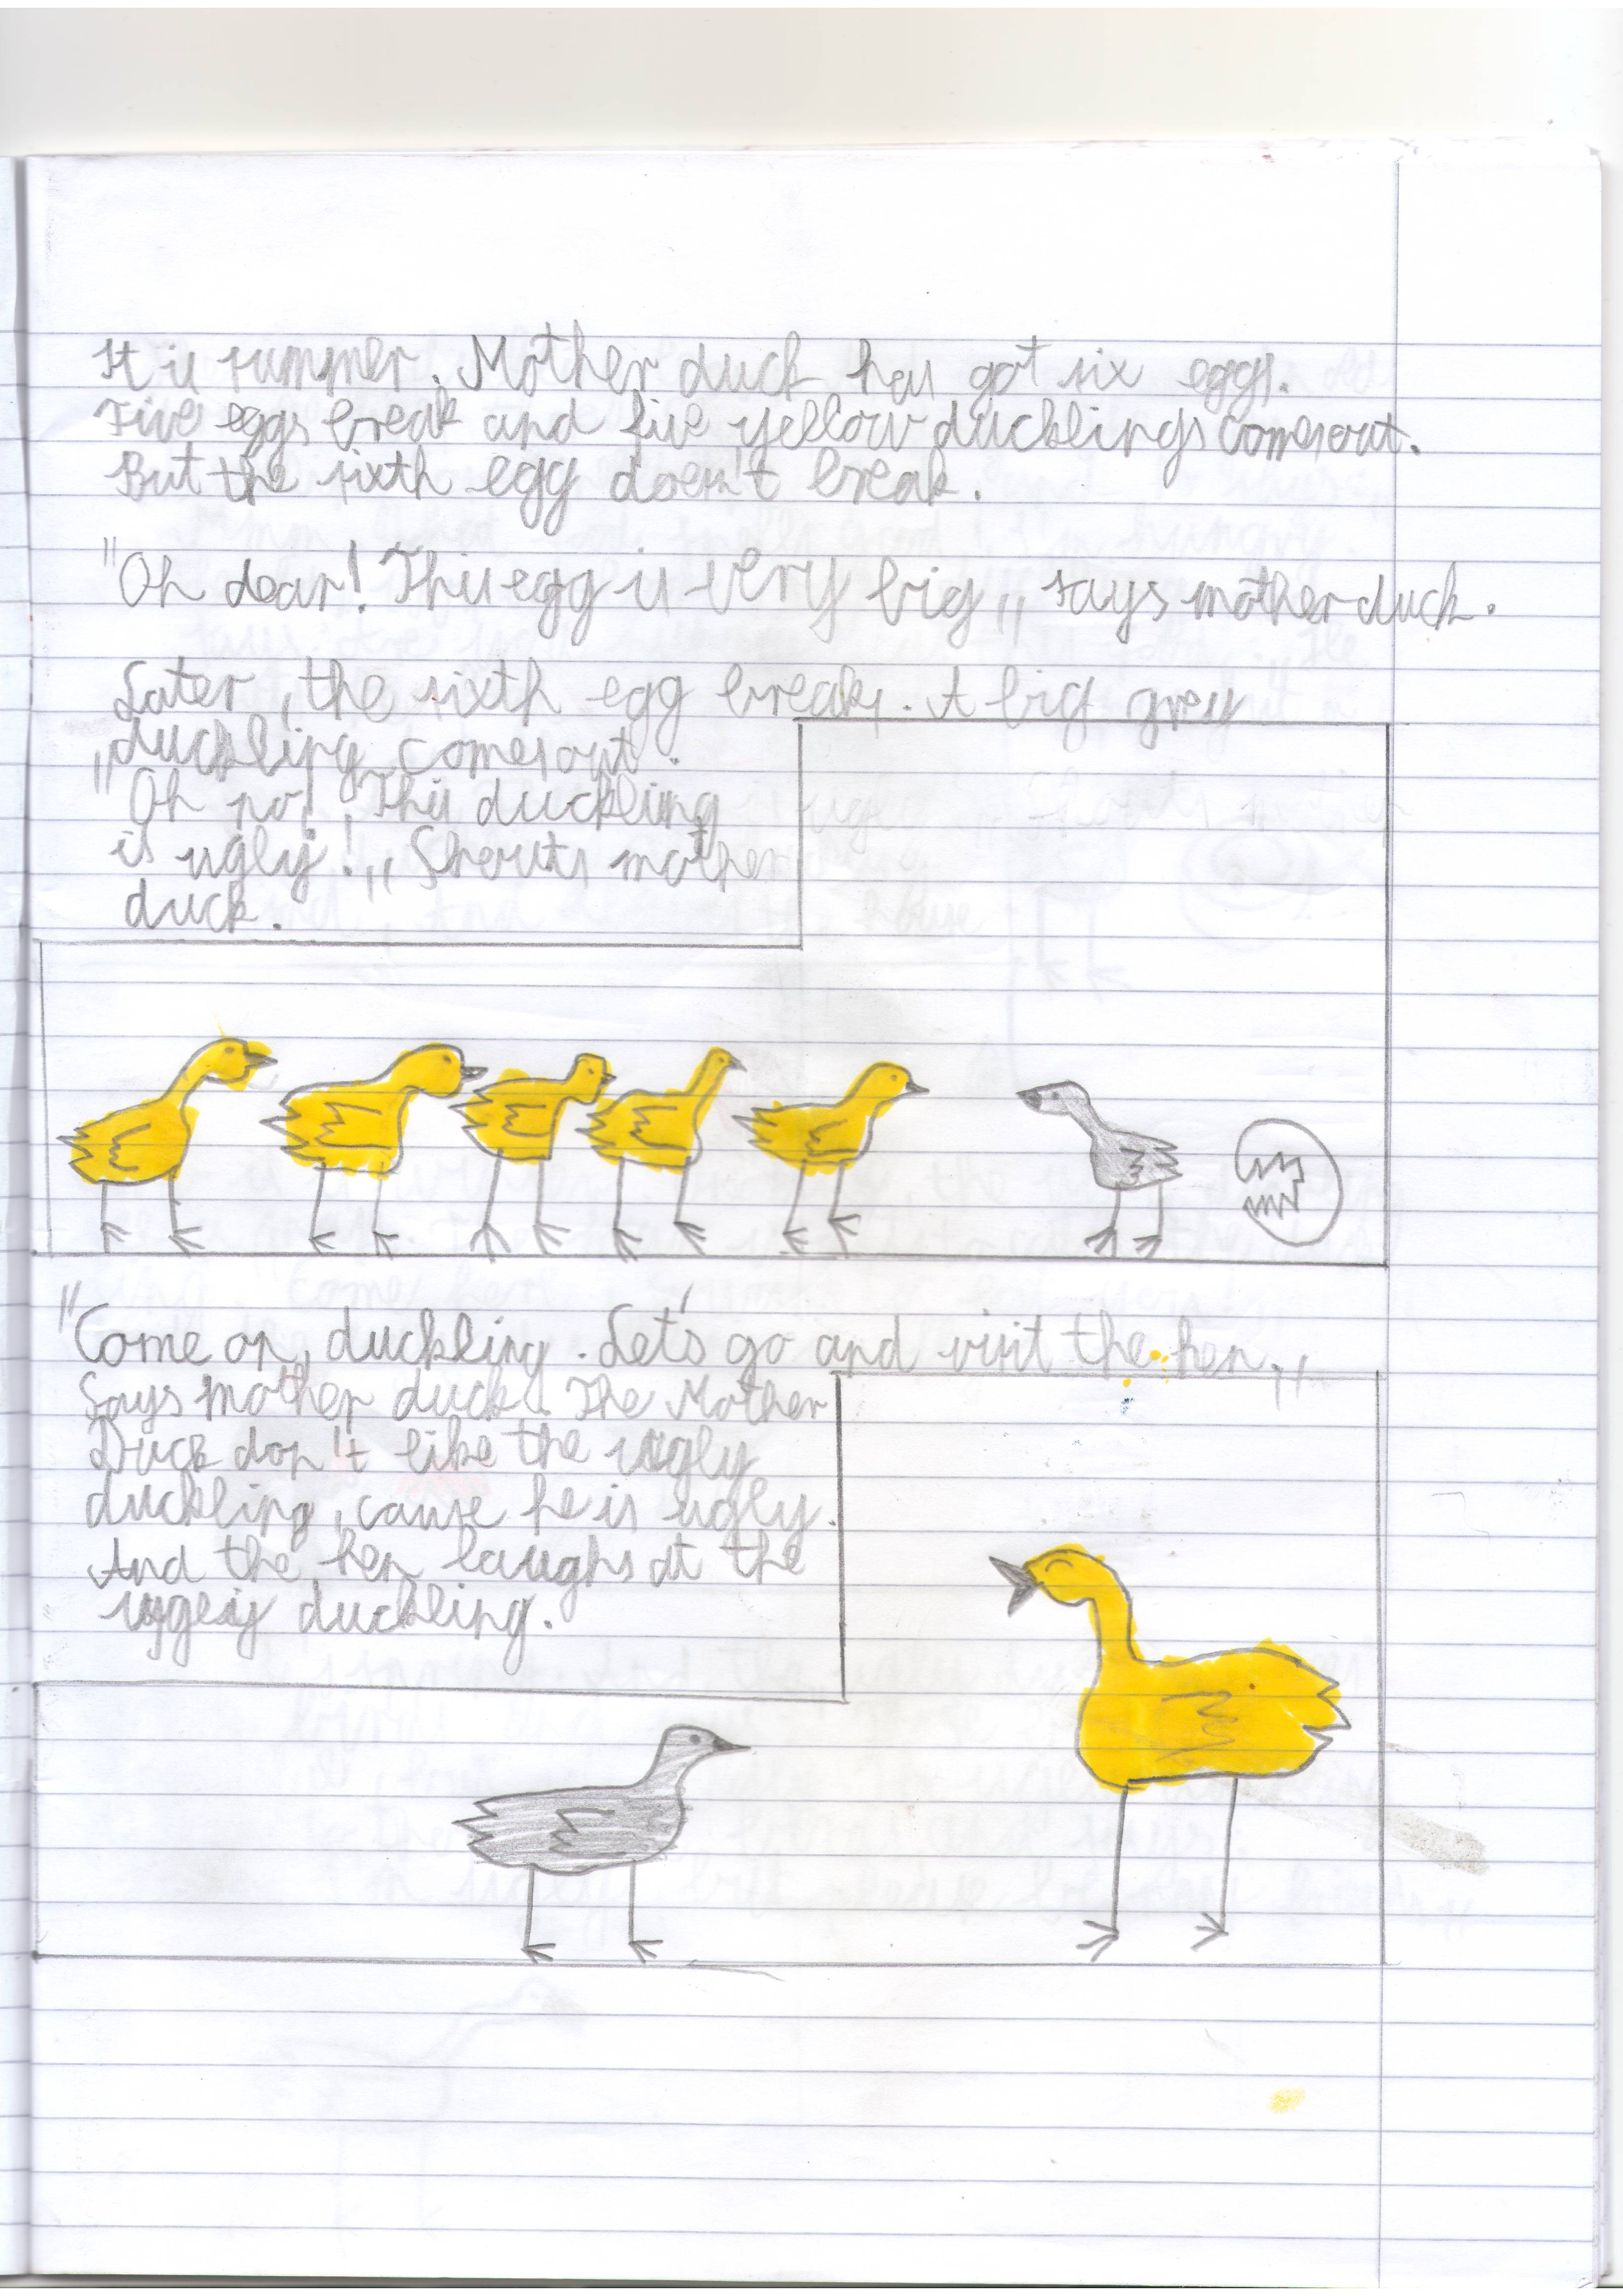 It is summer. Mother duck has got six eggs.
Five eggs break and five yellow ducklings comes out.
But the sixth egg doesn't break.
"Oh dear! This egg is very big,, says mother duck.
Later, the sixth egg breaks. A big grey
duckling comes out.
"Oh no! This duckling
is ugly!,, Shouts mother
duck.
"Come on, duckling. Let's go and visit the hen.,,
Says mother duck. The Mother
Duck don't like the ugly
duckling, cause he is ugly.
And the hen laughs at the
duckling.